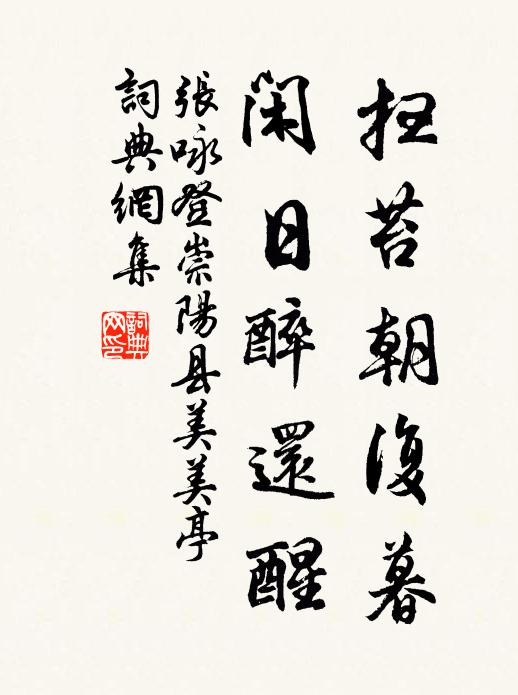 扫苔朝復暮
閑日醉還醒
張咏登崇陽县美美亭
詞典網集
詞典网印